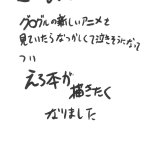 グログルの新しいアニメを
見ていたらなつかしくて泣きそうになって
つい
えろ本が
描きたく
なりました